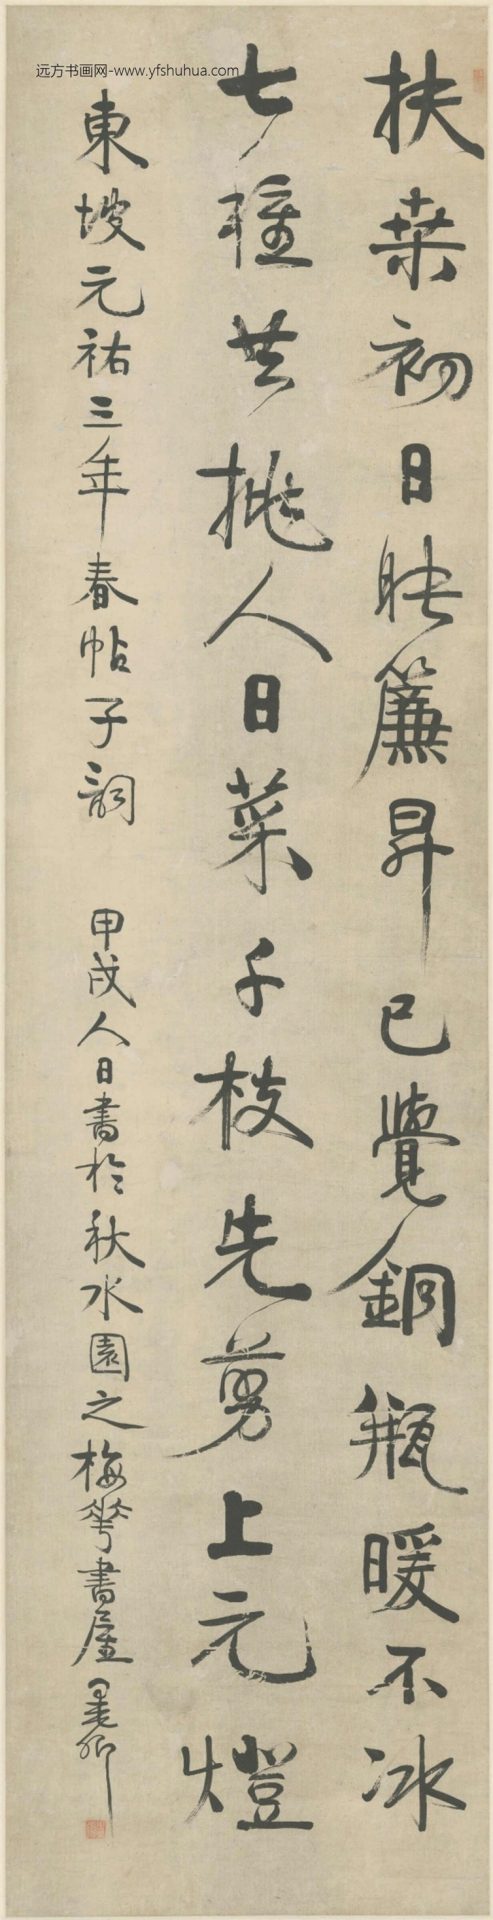 扶桒初日映簾昇已覺銅瓶暖不冰
七種共挑人日菜千枝先剪上元燈
東坡元祐三年春帖子詞
甲戌人日書於秋水園之梅華書屋
远方书画网-www.yfshuhua.com